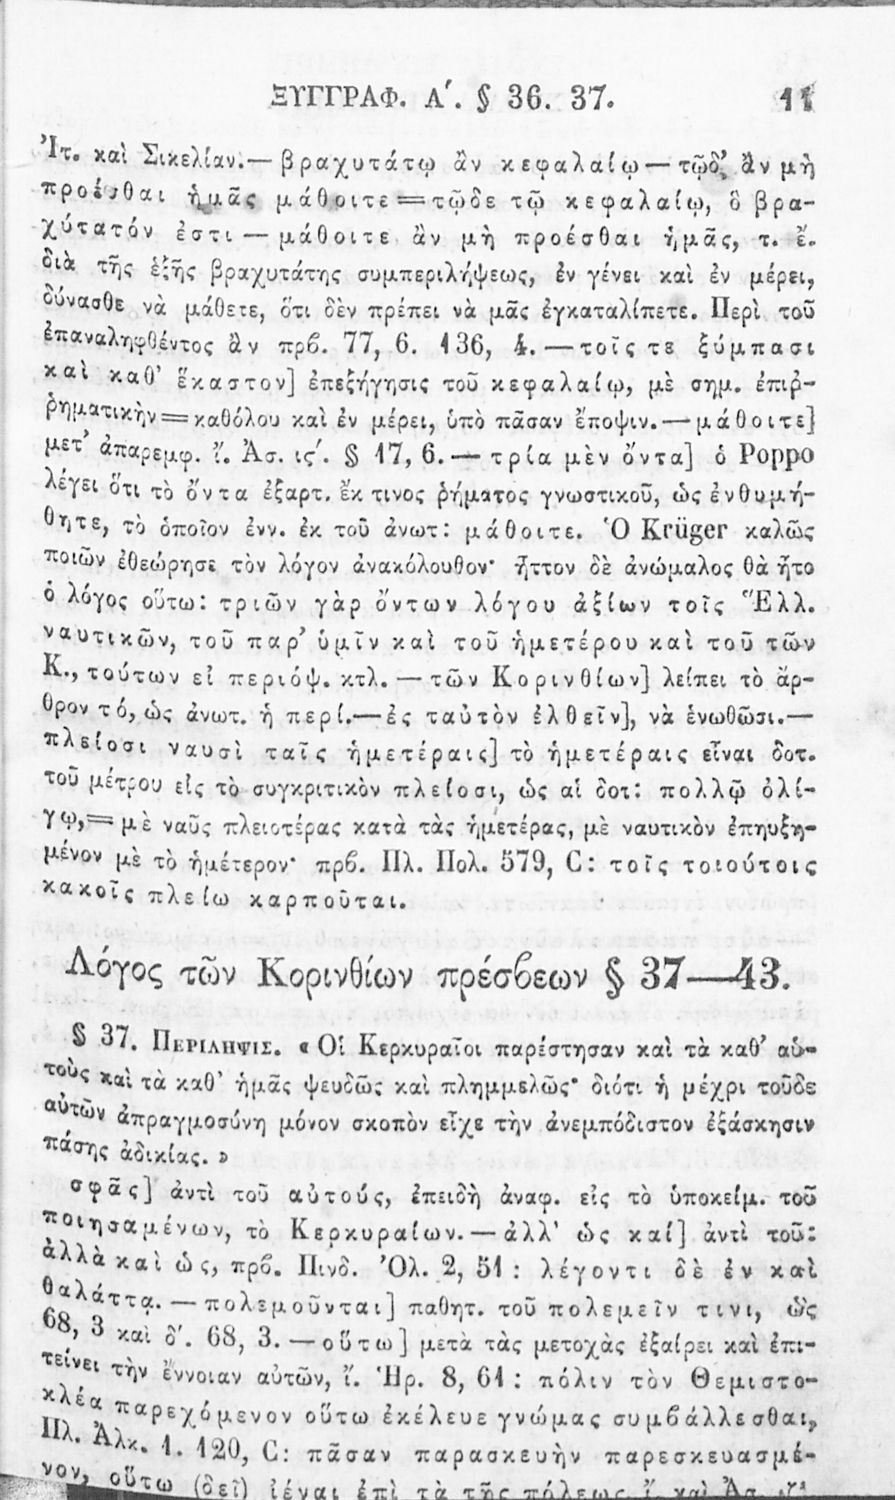 ΞΥΓΓΡΑΦ. Α΄. § 36. 37. 11
Ἰτ. καὶ Σικελίαν.— βραχυτάτῳ ἂν κεφαλαίῳ — τῷδ’ ἂν μὴ
προέσθαι ἡμᾶς μάθοιτε = τῷδε τῷ κεφαλαίῳ, ὃ βρα-
χύτατόν ἐστι — μάθοιτε ἂν μὴ προέσθαι ἡμᾶς, τ. ἔ.
διὰ τῆς ἑξῆς βραχυτάτης συμπεριλήψεως, ἐν γένει καὶ ἐν μέρει,
δύνασθε νὰ μάθετε, ὅτι δὲν πρέπει νὰ μᾶς ἐγκαταλίπετε. Περὶ τοῦ
ἐπαναληφθέντος ἂν πρβ. 77, 6. 136, 4. — τοῖς τε ξύμπασι
καὶ καθ’ ἕκαστον] ἐπεξήγησις τοῦ κεφαλαίῳ, μὲ σημ. ἐπιῤ-
ῥηματικὴν = καθόλου καὶ ἐν μέρει, ὑπὸ πᾶσαν ἔποψιν. — μάθοιτε]
μετ’ ἀπαρεμφ. ἴ. Ἀσ. ις΄. § 17, 6. — τρία μὲν ὄντα] ὁ Poppo
λέγει ὅτι τὸ ὄντα ἐξαρτ. ἔκ τινος ῥήματος γνωστικοῦ, ὡς ἐνθυμή-
θητε, τὸ ὁποῖον ἐνν. ἐκ τοῦ ἀνωτ: μάθοιτε. Ὁ Krüger καλῶς
ποιῶν ἐθεώρησε τὸν λόγον ἀνακόλουθον· ἧττον δὲ ἀνώμαλος θὰ ἦτο
ὁ λόγος οὕτω: τριῶν γὰρ ὄντων λόγου ἀξίων τοῖς Ἕλλ.
ναυτικῶν, τοῦ παρ’ ὑμῖν καὶ τοῦ ἡμετέρου καὶ τοῦ τῶν
Κ., τούτων εἰ περιόψ. κτλ. — τῶν Κορινθίων] λείπει τὸ ἄρ-
θρον τό, ὡς ἀνωτ. ἡ περί.— ἐς ταὐτὸν ἐλθεῖν], νὰ ἑνωθῶσι.—
πλείοσι ναυσὶ ταῖς ἡμετέραις] τὸ ἡμετέραις εἶναι δοτ.
τοῦ μέτρου εἰς τὸ συγκριτικὸν πλείοσι, ὡς αἱ δοτ: πολλῷ ὀλί-
γῳ, = μὲ ναῦς πλειοτέρας κατὰ τὰς ἡμετέρας, μὲ ναυτικὸν ἐπηυξη-
μένον μὲ τὸ ἡμέτερον· πρβ. Πλ. Πολ. 579, C: τοῖς τοιούτοις
κακοῖς πλείω καρποῦται.
Λόγος τῶν Κορινθίων πρέσβεων § 37—43.
§ 37. ΠΕΡΙΛΗΨΙΣ. «Οἱ Κερκυραῖοι παρέστησαν καὶ τὰ καθ’ αὑ-
τοὺς καὶ τὰ καθ’ ἡμᾶς ψευδῶς καὶ πλημμελῶς· διότι ἡ μέχρι τοῦδε
αὐτῶν ἀπραγμοσύνη μόνον σκοπὸν εἶχε τὴν ἀνεμπόδιστον ἐξάσκησιν
πάσης ἀδικίας.»
σφᾶς] ἀντὶ τοῦ αὐτούς, ἐπειδὴ ἀναφ. εἰς τὸ ὑποκείμ. τοῦ
ποιησαμένων, τὸ Κερκυραίων. — ἀλλ’ ὡς καί] ἀντὶ τοῦ:
ἀλλὰ καὶ ὡς, πρβ. Πινδ. Ὀλ. 2, 51: λέγοντι δὲ ἐν καὶ
θαλάττᾳ. — πολεμοῦνται] παθητ. τοῦ πολεμεῖν τινι, ὡς
68, 3 καὶ δ΄. 68, 3. — οὕτω] μετὰ τὰς μετοχὰς ἐξαίρει καὶ ἐπι-
τείνει τὴν ἔννοιαν αὐτῶν, ἴ. Ἡρ. 8, 61: πόλιν τὸν Θεμιστο-
κλέα παρεχόμενον οὕτω ἐκέλευε γνώμας συμβάλλεσθαι,
Πλ. Ἀλκ. 1. 120, C: πᾶσαν παρασκευὴν παρεσκευασμέ-
νον, οὕτω (δεῖ) ἰέναι ἐπὶ τὰ τῆς πόλεως. ἴ. καὶ Ἀσ.